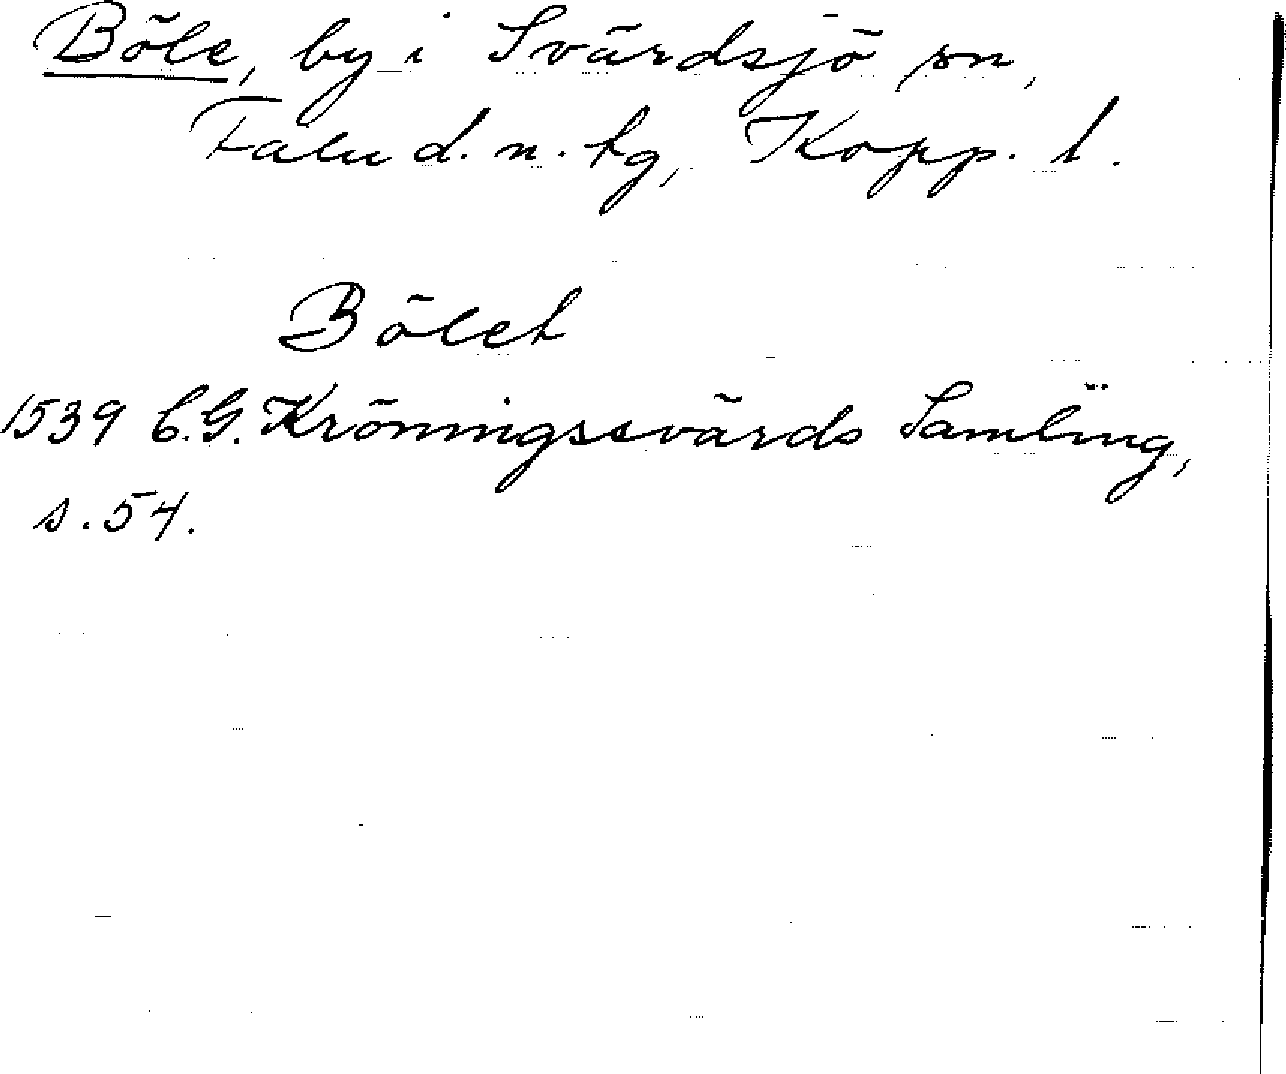 Böle, by i Svärdsjö sn,
Falu d. n. tg, Kopp. l.
Bölet
1539 C.G. Kröningssvärds Samling,
s. 54.